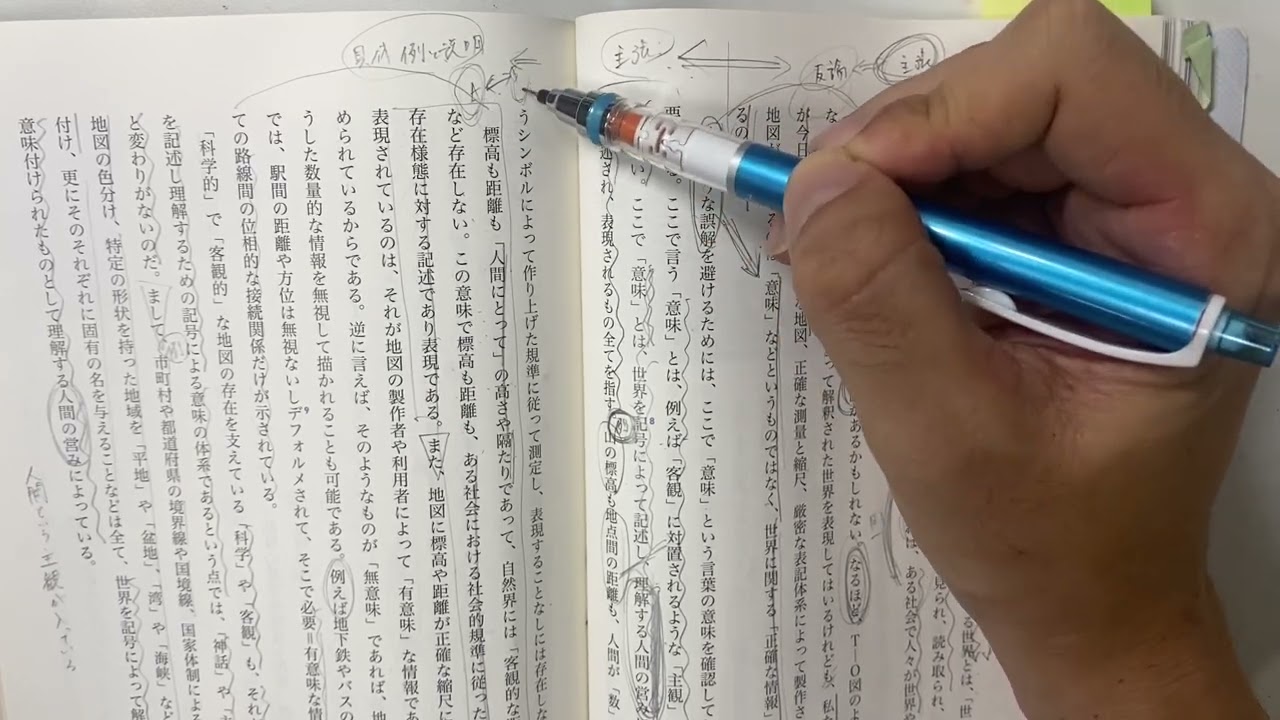 具体例と説明
主張
反論
主張
A
見られ、読み取られ、
は、ある社会で人々が世界や
があるかもしれない。なるほど、TIO図のよ
って解釈された世界を表現してはいるけれども、私た
な地図、正確な測量と縮尺、厳密な表記体系によって製作さ
「意味」などというものではなく、世界に関する「正確な情報」
な誤解を避けるためには、ここで「意味」という言葉の意味を確認して
る。ここで言う「意味」とは、例えば「客観」に対置されるような「主観」
い。ここで「意味」とは、世界を記号によって記述し、理解する人間の営み
述され、表現されるもの全てを指す。山の標高も地点間の距離も、人間が「数」
うシンボルによって作り上げた規準に従って測定し、表現することなしには存在しな
標高も距離も「人間にとって」の高さや隔たりであって、自然界には「客観的な
など存在しない。この意味で標高も距離も、ある社会における社会的規準に従った
存在様態に対する記述であり表現である。また、地図に標高や距離が正確な縮尺に
表現されているのは、それが地図の製作者や利用者によって「有意味」な情報であ
められているからである。逆に言えば、そのようなものが「無意味」であれば、地
うした数量的な情報を無視して描かれることも可能である。例えば地下鉄やバスの
では、駅間の距離や方位は無視ないしデフォルメされて、そこで必要=有意味な情
ての路線間の位相的な接続関係だけが示されている。
「科学的」で「客観的」な地図の存在を支えている「科学」や「客観」も、それ
を記述し理解するための記号による意味の体系であるという点では、「神話」や
ど変わりがないのだ。まして、市町村や都道府県の境界線や国境線、国家体制による
地図の色分け、特定の形状を持った地域を「平地」や「盆地」、「湾」や「海峡」など
付け、更にそのそれぞれに固有の名を与えることなどは全て、世界を記号によって解
意味付けられたものとして理解する人間の営みによっている。